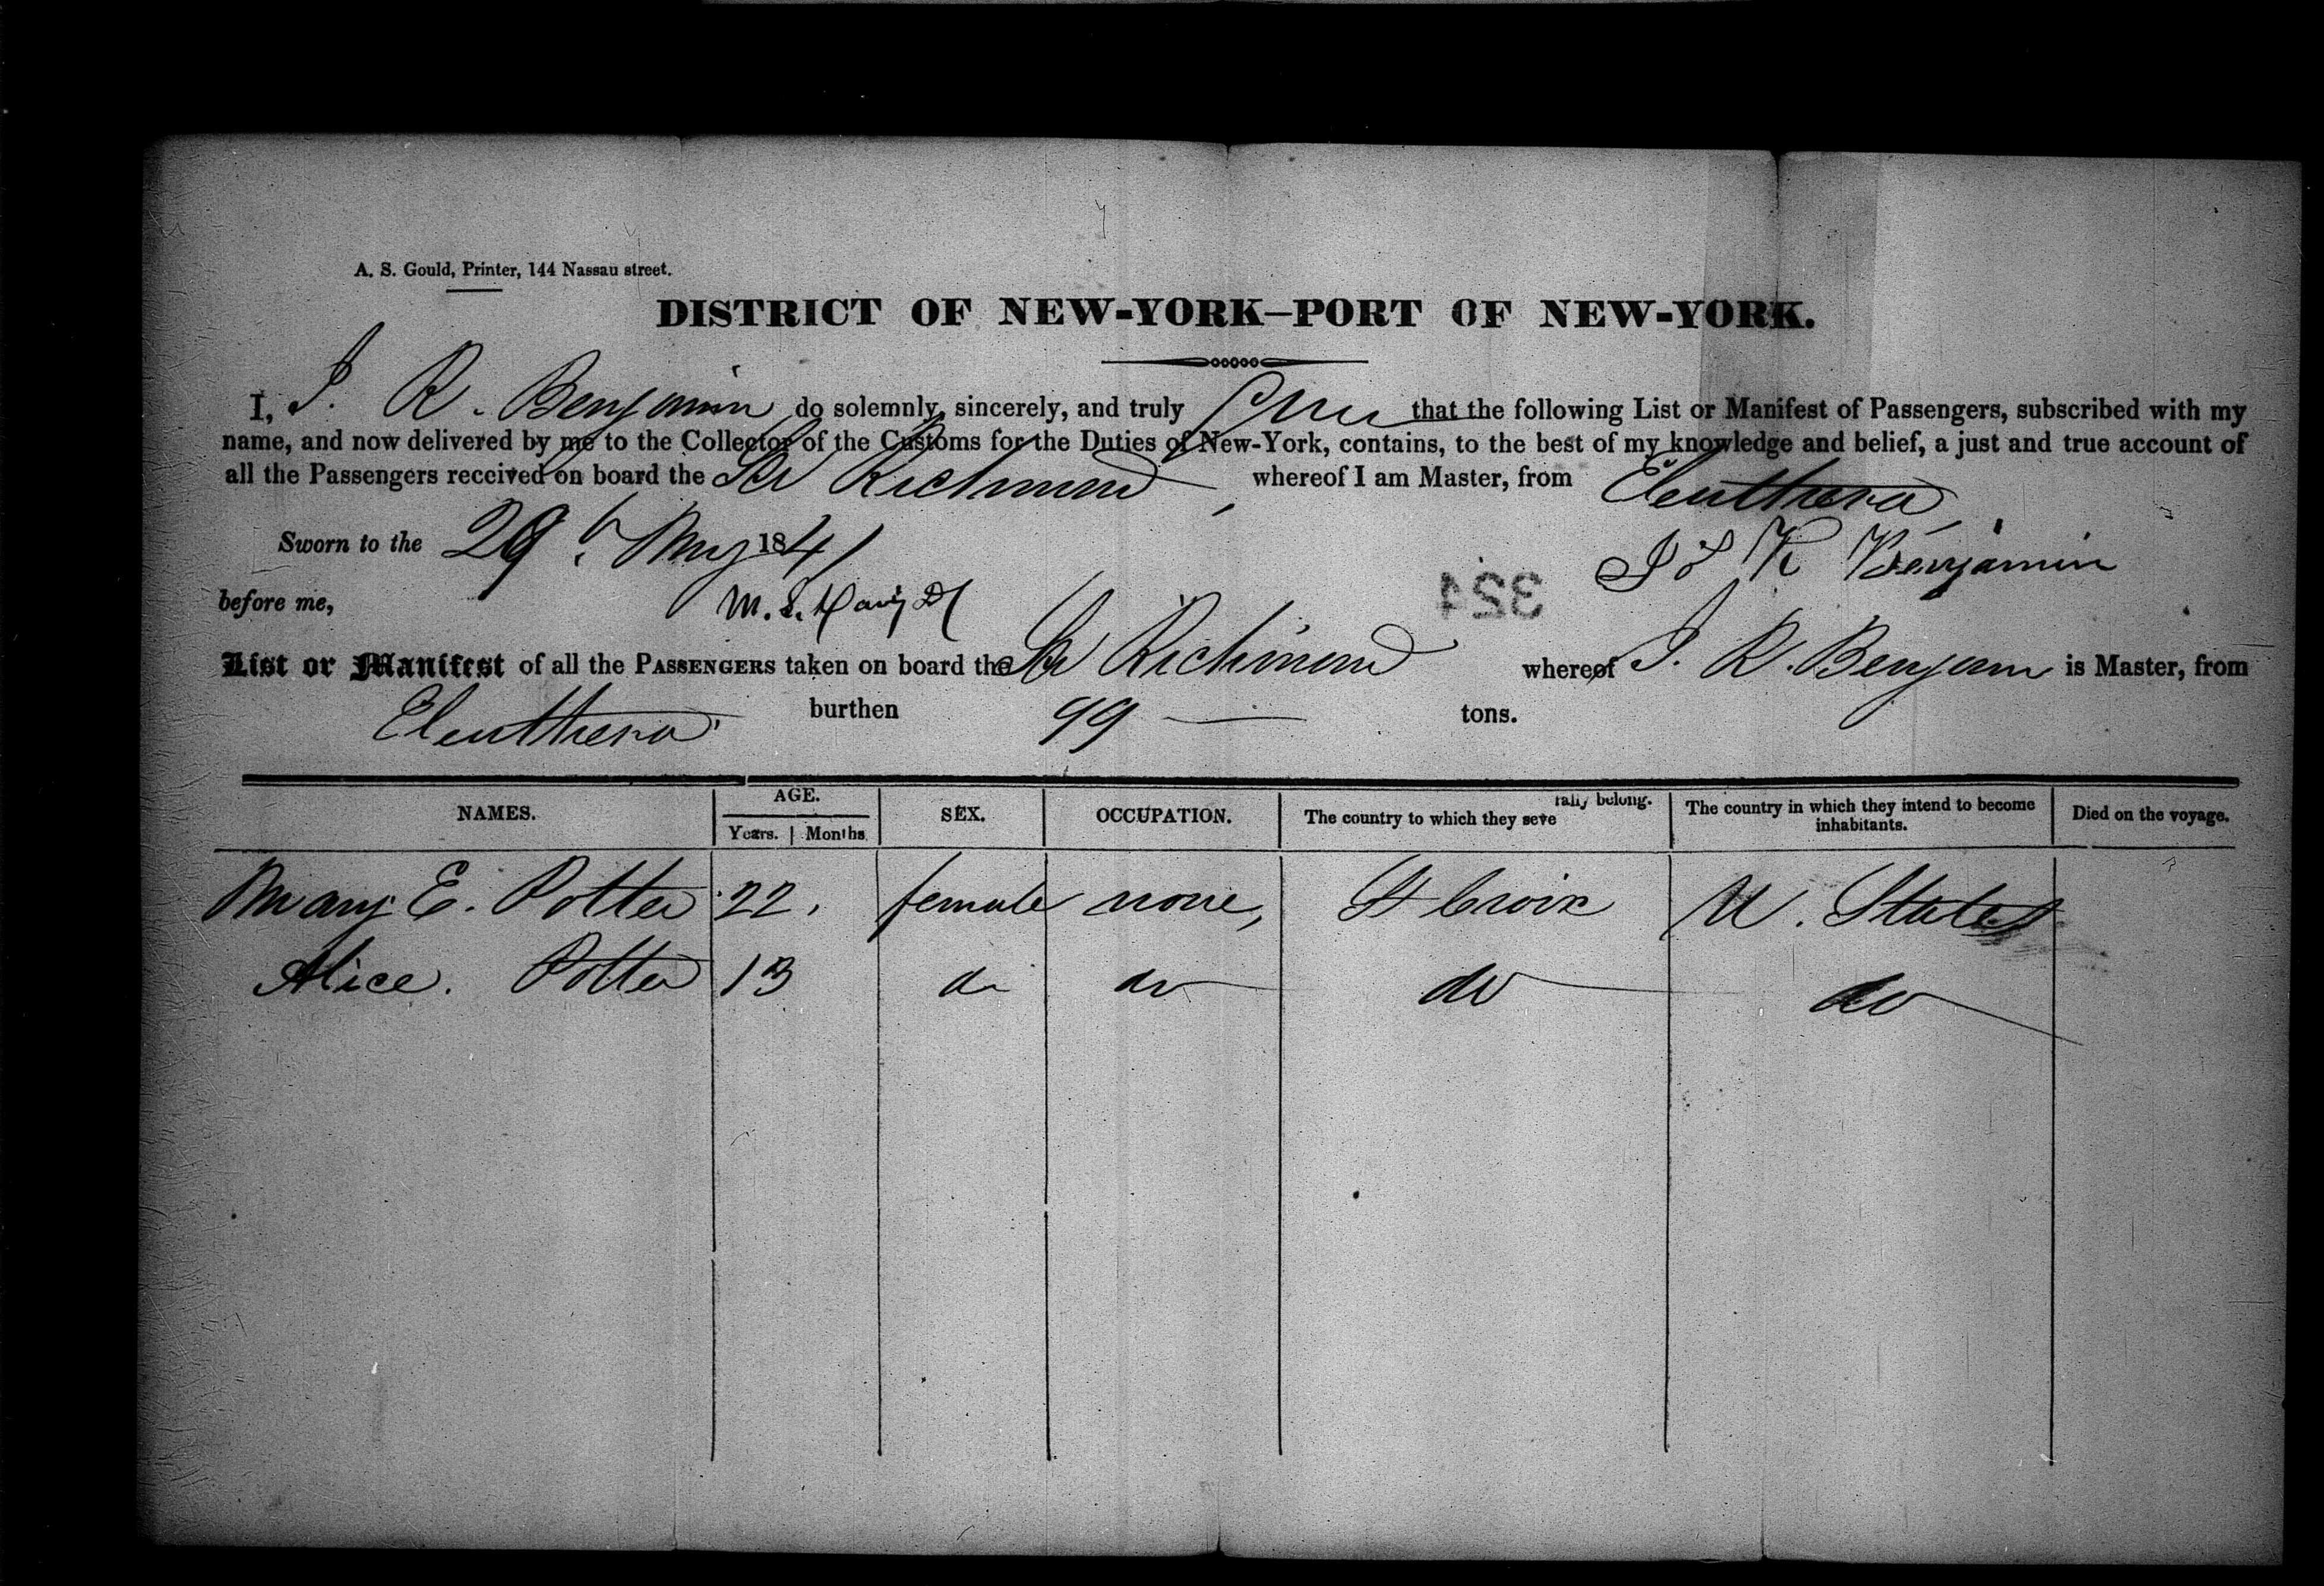 A. S. Gould, Printer, 144 Nassau street.
DISTRICT OF NEW-YORK—PORT OF NEW-YORK.
I, J. R. Benjamin do solemnly, sincerely, and truly that the following List or Manifest of Passengers, subscribed with my
name, and now delivered by me to the Collector of the Customs for the Duties of New-York, contains, to the best of my knowledge and belief, a just and true account of
all the Passengers received on board the Scr Richmond, whereof I am Master, from Eleuthera
Sworn to the 29th May 1841
J R Benjamin
before me,
324
List or Manifest of all the PASSENGERS taken on board the Scr Richmond whereof J. R. Benjamin is Master, from
Eleuthera burthen 99 tons.
NAMES. AGE. Years. Months. SEX. OCCUPATION. The country to which they seve rally belong. The country in which they intend to become inhabitants. Died on the voyage.
Mary E. Potter 22. female none, St Croix U. States
Alice. Potter 13 do do do do